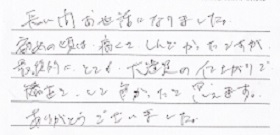 長い間お世話になりました。
初めの頃は、痛くてしんどかったですが、
最終的に、とても大満足の仕上がりで
矯正をして良かったと思えます。
ありがとうございました。